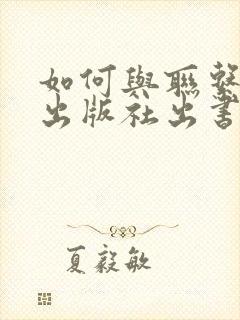 如何與聯繫
出版社出書
夏毅敏